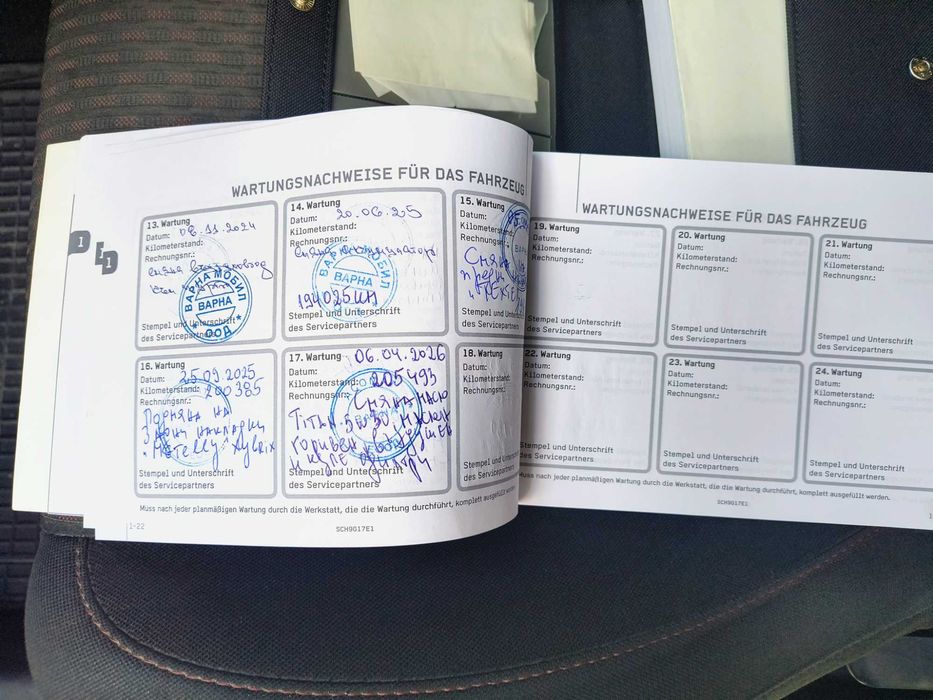 WARTUNGSNACHWEISE FÜR DAS FAHRZEUG
13. Wartung
Datum: 06.11.2024
Kilometerstand:
Rechnungsnr.:
смяна
ВАРНА МОБИЛ
ВАРНА
ООД
Stempel und Unterschrift
des Servicepartners
14. Wartung
Datum: 20.06.25
Kilometerstand:
Rechnungsnr.:
смяна акумулатора
ВАРНА МОБИЛ
ВАРНА
194025 км
Stempel und Unterschrift
des Servicepartners
15. Wartung
Datum:
Kilometerstand
Rechnungsnr.
Смяна
предни
Stempel und
des Service
16. Wartung
Datum: 25.09.2025
Kilometerstand: 200385
Rechnungsnr.:
Подмяна на
задни накладки
Stempel und Unterschrift
des Servicepartners
17. Wartung
Datum: 06.04.2026
Kilometerstand: 205493
Rechnungsnr.: Смяна масло
TITAN 5W30, маслен
горивен, въздушен
и купе филтри
Stempel und Unterschrift
des Servicepartners
18. Wartung
Datum:
Kilometerstand:
Rechnungsnr.:
Stempel und
des Service
Muss nach jeder planmäßigen Wartung durch die Werkstatt, die die Wartung durchführt, komplett ausgefüllt
1-22
SCH9G17E1
WARTUNGSNACHWEISE FÜR DAS FAHRZEUG
19. Wartung
Datum:
Kilometerstand:
Rechnungsnr.:
Stempel und Unterschrift
des Servicepartners
20. Wartung
Datum:
Kilometerstand:
Rechnungsnr.:
Stempel und Unterschrift
des Servicepartners
21. Wartung
Datum:
Kilometerstand:
Rechnungsnr.:
Stempel und Unterschrift
des Servicepartners
22. Wartung
Datum:
Kilometerstand:
Rechnungsnr.:
Stempel und Unterschrift
des Servicepartners
23. Wartung
Datum:
Kilometerstand:
Rechnungsnr.:
Stempel und Unterschrift
des Servicepartners
24. Wartung
Datum:
Kilometerstand:
Rechnungsnr.:
Stempel und Unterschrift
des Servicepartners
Muss nach jeder planmäßigen Wartung durch die Werkstatt, die die Wartung durchführt, komplett ausgefüllt werden.
SCH9G17E1